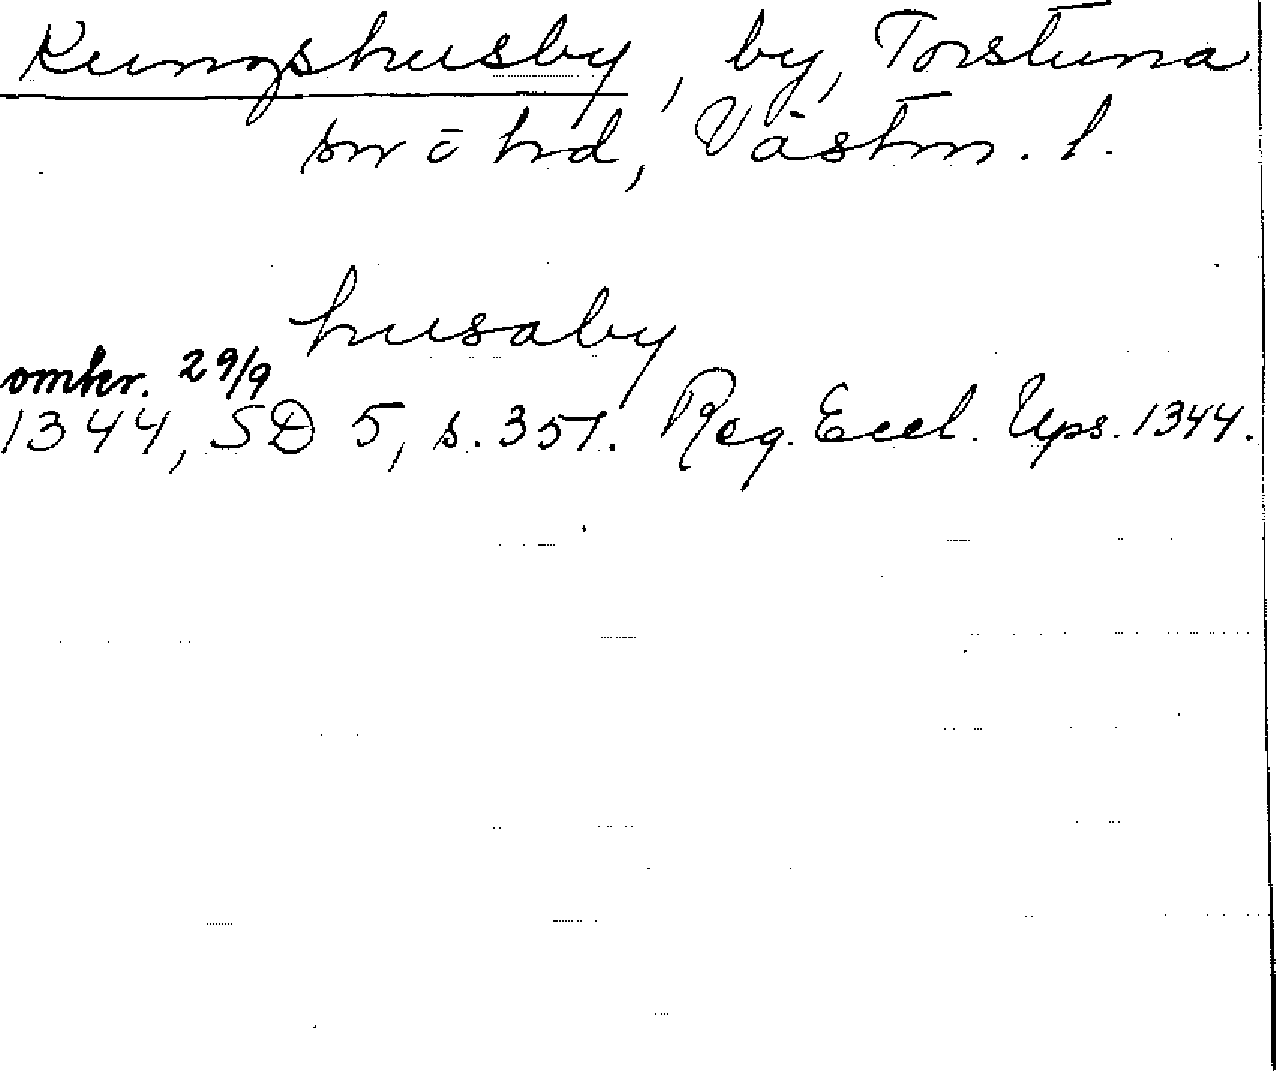 Kungshusby, by, Torstuna
sn o hd, Västm. l.
husaby
omkr. 29/9
1344, SD 5, s. 357. Reg. Eccl. Ups. 1344.